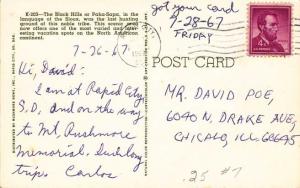 K-203—The Black Hills or Paha-Sapa, in the
language of the Sioux, was the last hunting
ground of this noble tribe. This scenic area
now offers one of the most varied and inter-
esting vacation spots on the North American
continent.
7-26-67
Hi, David:
I am at Rapid City,
S.D. and on the way
to Mt. Rushmore
Memorial. 
trip. Carlos
got your card
7-28-67
FRIDAY
4¢
POST CARD
MR. DAVID POE,
6040 N. DRAKE AVE,
CHICAGO, ILL. 60645
.25 #7